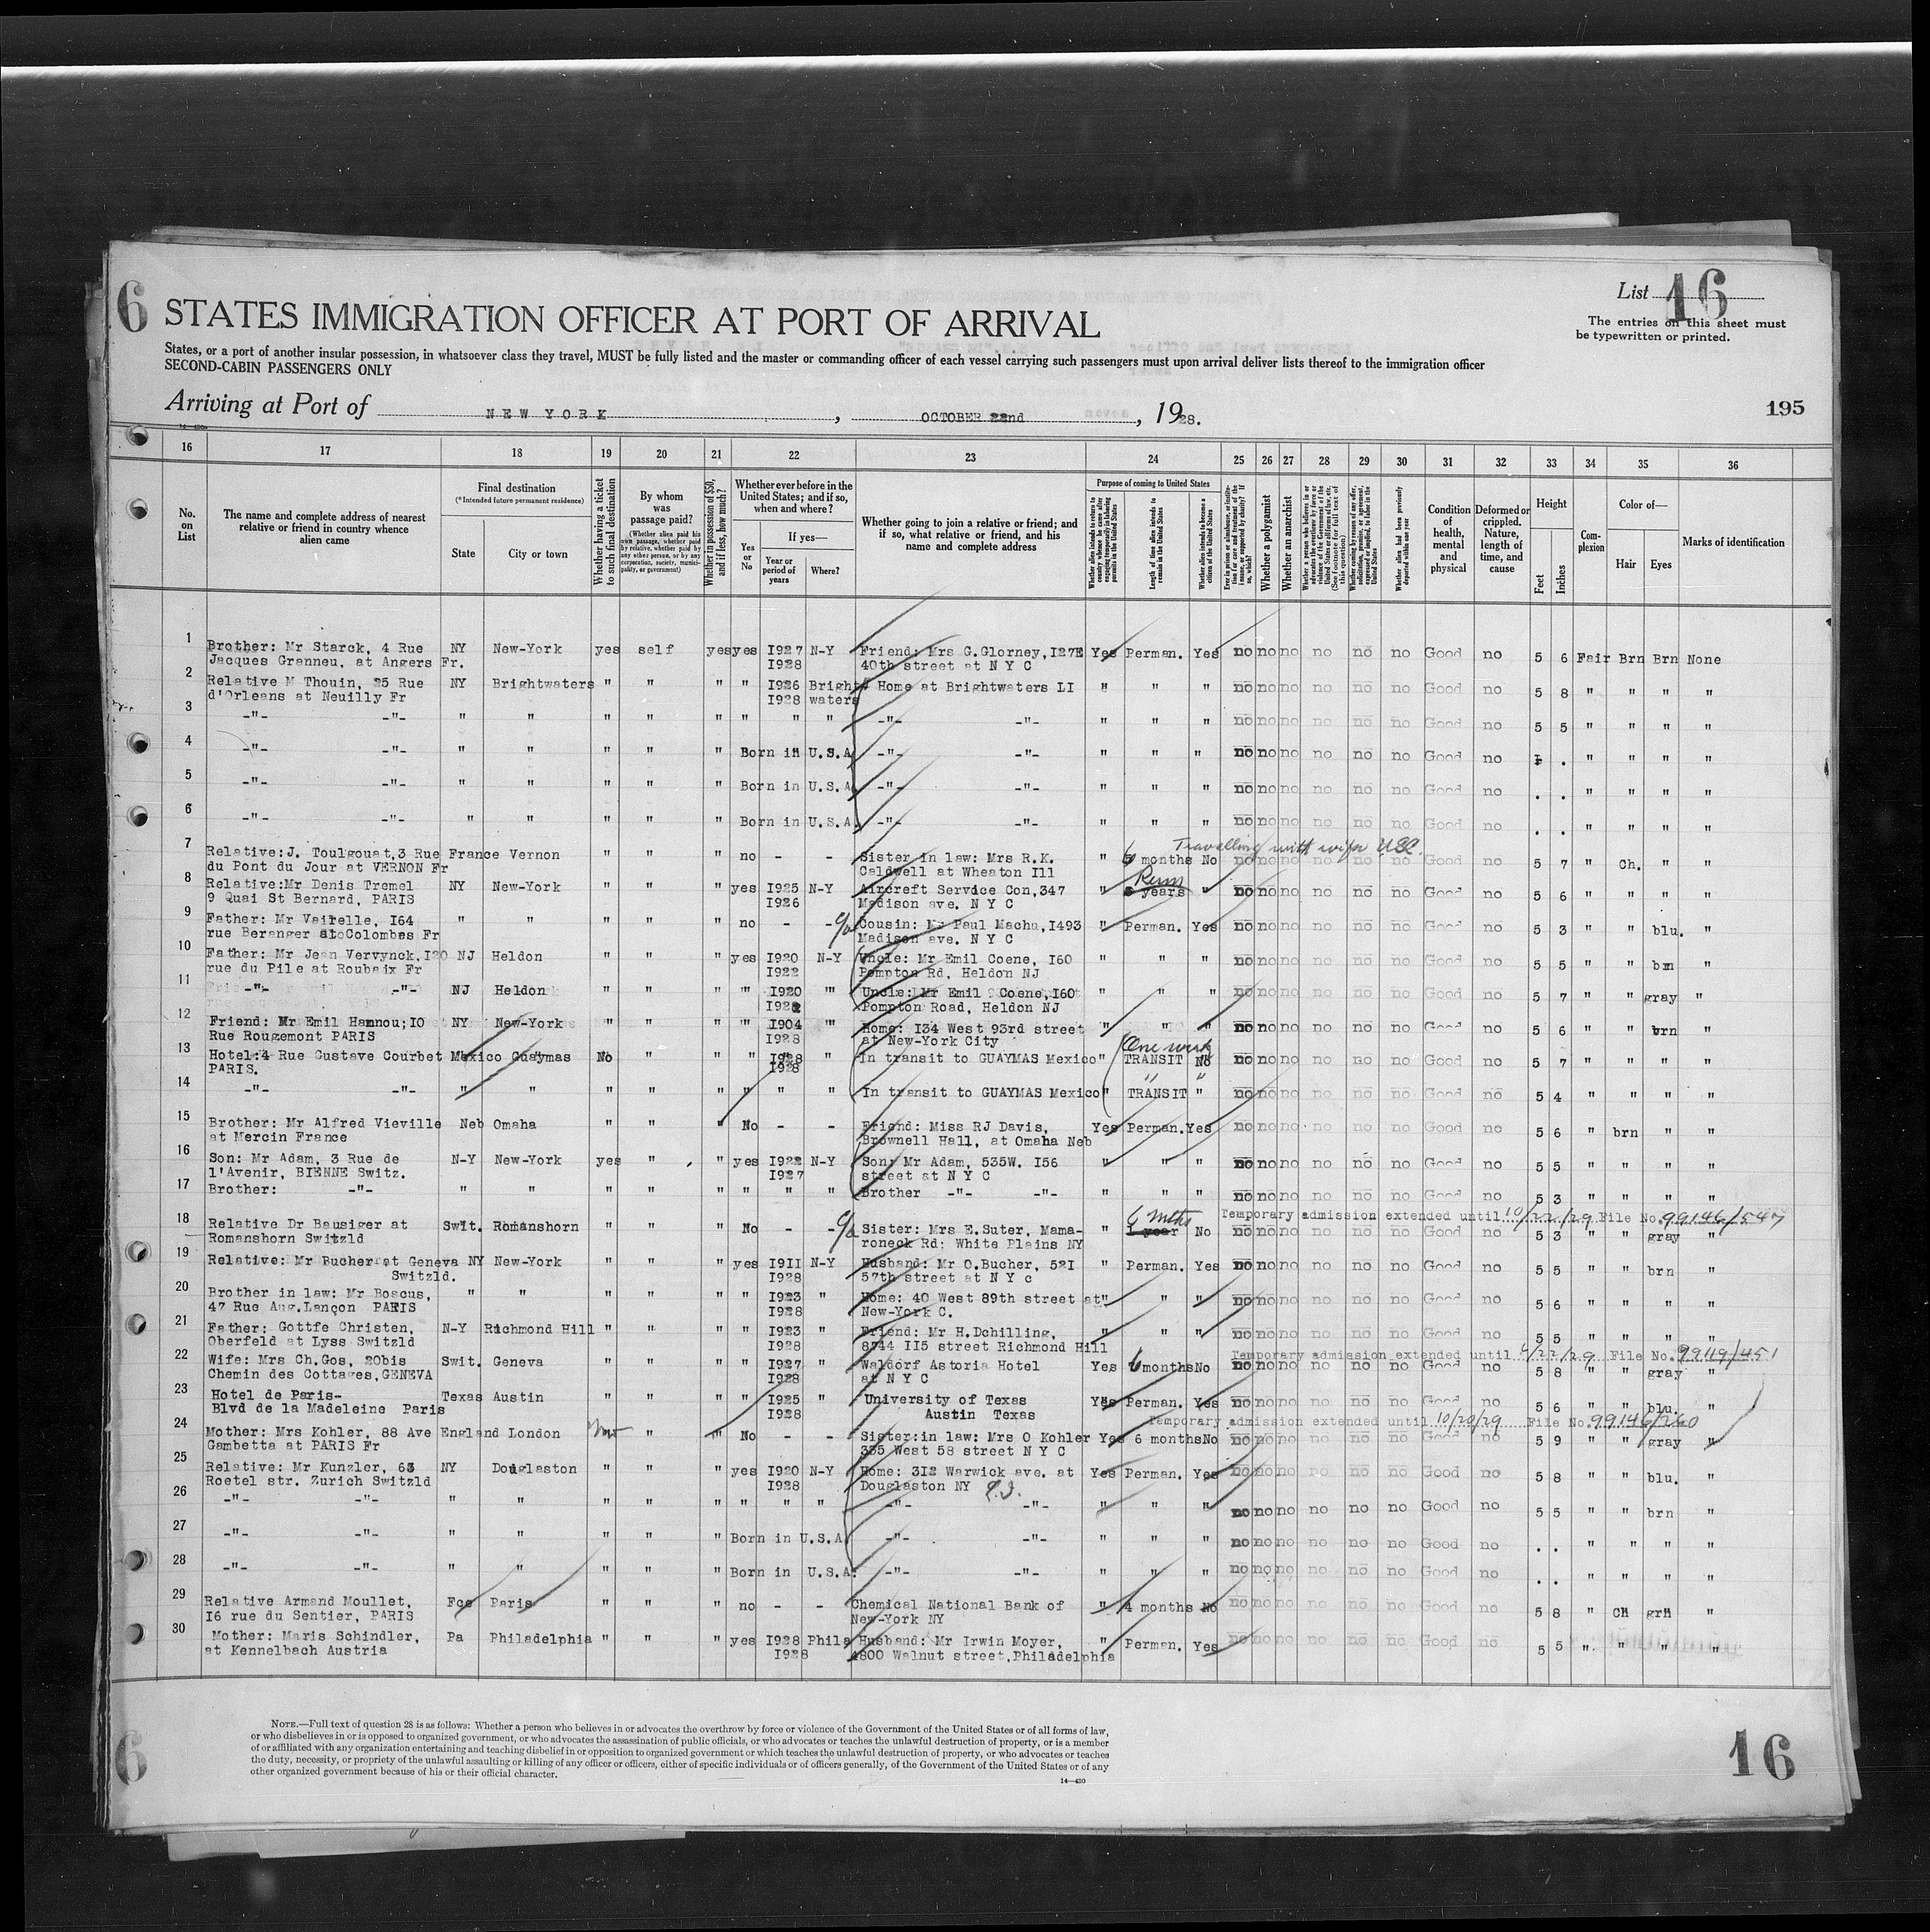 6
STATES IMMIGRATION OFFICER AT PORT OF ARRIVAL
List 16
The entries on this sheet must
be typewritten or printed.
States, or a port of another insular possession, in whatsoever class they travel, MUST be fully listed and the master or commanding officer of each vessel carrying such passengers must upon arrival deliver lists thereof to the immigration officer
SECOND-CABIN PASSENGERS ONLY
Arriving at Port of NEW YORK, OCTOBER 22nd, 1928.
195
16 17 18 19 20 21 22 23 24 25 26 27 28 29 30 31 32 33 34 35 36
No. on List
The name and complete address of nearest relative or friend in country whence alien came
Final destination
(*Intended future permanent residence)
State
City or town
Whether having a ticket to such final destination
By whom was passage paid?
(Whether alien paid his own passage, whether paid by relative, whether paid by any other person, or by any corporation, society, municipality, or government)
Whether in possession of $50, and if less, how much?
Whether ever before in the United States; and if so, when and where?
Yes or No
If yes—
Year or period of years
Where?
Whether going to join a relative or friend; and if so, what relative or friend, and his name and complete address
Purpose of coming to United States
Length of time alien intends to remain in the United States
Whether alien intends to become a citizen of the United States
Whether a polygamist
Whether an anarchist
Condition of health, mental and physical
Deformed or crippled. Nature, length of time, and cause
Height
Feet
Inches
Complexion
Color of—
Hair
Eyes
Marks of identification
1 Brother: Mr Starck, 4 Rue NY New-York yes self yes yes I927 N-Y Friend: Mrs G.Glorney,I27E Yes Perman. Yes no no no no no no Good no 5 6 Fair Brn Brn None
Jacques Granneu, at Angers Fr. I928 40th street at N Y C
2 Relative M Thouin, 25 Rue NY Brightwaters " " " " I926 Bright Home at Brightwaters LI " " " no no no no no no Good no 5 8 " " " "
d'Orleans at Neuilly Fr I928 waters
3 -"- -"- " " " " " " " " -"- -"- " " " no no no no no no Good no 5 5 " " " "
4 -"- -"- " " " " " Born in U.S.A -"- -"- " " " no no no no no no Good no . " " " "
5 -"- -"- " " " " " Born in U.S.A -"- -"- " " " no no no no no no Good no . . " " " "
6 -"- -"- " " " " " Born in U.S.A. -"- -"- " " " no no no no no no Good no . . " " " "
Travelling with wife USC.
7 Relative:J. Toulgouat,3 Rue France Vernon " " " no - - Sister in law: Mrs R.K. " 6 months No no no no no no no Good no 5 7 " Ch. " "
du Pont du Jour at VERNON Fr Caldwell at Wheaton Ill
Perm
8 Relative:Mr Denis Tremel NY New-York " " " yes I925 N-Y Aircreft Service Con,347 " years " no no no no no no Good no 5 6 " " " "
9 Quai St Bernard, PARIS I926 Madison ave. N Y C
9 Father: Mr Vairelle, I64 " " " " " no - - c/o Cousin: Mr Paul Machu,I493 " Perman. Yes no no no no no no Good no 5 3 " " blu. "
rue Beranger at Colombes Fr Madison ave. N Y C
10 Father: Mr Jean Vervynck,I20 NJ Heldon " " " yes I920 N-Y Uncle: Mr Emil Coene, I60 " " " no no no no no no Good no 5 5 " " brn "
rue du Pile at Roubaix Fr I922 Pompton Rd, Heldon NJ
11 -"- -"- NJ Heldon " " " " I920 " Uncle: Mr Emil Coene,I60 " " " no no no no no no Good no 5 7 " " gray "
I922 Pompton Road, Heldon NJ
12 Friend: Mr Emil Hannou;I0 NY New-York " " " " I904 " Home: I34 West 93rd street " " " no no no no no no Good no 5 6 " " brn "
Rue Rougemont PARIS I928 at New-York City
One week
13 Hotel:4 Rue Gustave Courbet Mexico Guaymas No " " " I928 " In transit to GUAYMAS Mexico " TRANSIT No no no no no no no Good no 5 7 " " " "
PARIS. I928
14 -"- -"- " " " " " " " " In transit to GUAYMAS Mexico " TRANSIT " no no no no no no Good no 5 4 " " " "
15 Brother: Mr Alfred Vieville Neb Omaha " " " No - - Friend: Miss RJ Davis, Yes Perman. Yes no no no no no no Good no 5 6 " brn " "
at Mercin France Brownell Hall, at Omaha Neb
16 Son: Mr Adam, 3 Rue de N-Y New-York yes " " yes I922 N-Y Son: Mr Adam, 535W. I56 " " " no no no no no no Good no 5 5 " " " "
l'Avenir, BIENNE Switz. I927 street at N Y C
17 Brother: -"- " " " " " " " " Brother -"- -"- " " " no no no no no no Good no 5 3 " " " "
6 mths Temporary admission extended until 10/22/29 File No. 99146/547
18 Relative Dr Bausiger at Swit. Romanshorn " " " No - - c/o Sister: Mrs E.Suter, Mama- " 1 year No no no no no no no Good no 5 3 " " gray "
Romanshorn Switzld roneck Rd; White Plains NY
19 Relative: Mr Bucher at Geneva NY New-York " " " yes I9II N-Y Husband: Mr O.Bucher, 52I " Perman. Yes no no no no no no Good no 5 5 " " brn "
Switzld. I928 57th street at N Y c
20 Brother in law: Mr Boscus, " " " " " " I923 " Home: 40 West 89th street at " " " no no no no no no Good no 5 6 " " " "
47 Rue Aug.Lançon PARIS I928 New-York C.
21 Father: Gottfe Christen, N-Y Richmond Hill " " " " I923 " Friend: Mr H.Dchilling, " " " no no no no no no Good no 5 5 " " " "
Oberfeld at Lyss Switzld I928 8744 II5 street Richmond Hill
Temporary admission extended until 4/22/29 File No. 99119/451
22 Wife: Mrs Ch.Gos, 20bis Swit. Geneva " " " " I927 " Waldorf Astoria Hotel Yes 6 months No no no no no no no Good no 5 8 " " gray "
Chemin des Cottages,GENEVA I928 at N Y C
23 Hotel de Paris- Texas Austin " " " " I925 " University of Texas Yes Perman. Yes no no no no no no Good no 5 6 " " blu. "
Blvd de la Madeleine Paris I928 Austin Texas
Temporary admission extended until 10/20/29 File No. 99146/260
24 Mother: Mrs Kohler, 88 Ave England London no " " No - - Sister:in law: Mrs O Kohler Yes 6 months No no no no no no no Good no 5 9 " " gray "
Gambetta at PARIS Fr 335 West 58 street N Y C
25 Relative: Mr Kunzler, 63 NY Douglaston " " " yes I920 N-Y Home: 3I2 Warwick ave. at Yes Perman. Yes no no no no no no Good no 5 8 " " blu. "
Roetel str. Zurich Switzld I928 Douglaston NY L.I.
26 -"- -"- " " " " " " " " -"- -"- " " " no no no no no no Good no 5 5 " " brn "
27 -"- -"- " " " " " Born in U.S.A -"- -"- " " " no no no no no no Good no . . " " " "
28 -"- -"- " " " " " Born in U.S.A. -"- -"- " " " no no no no no no Good no . . " " " "
29 Relative Armand Moullet, Fce Paris " " " no - - Chemical National Bank of " 4 months No no no no no no no Good no 5 8 " CH grn "
I6 rue du Sentier, PARIS New-York NY
30 Mother: Maris Schindler, Pa Philadelphia " " " yes I928 Phila Husband: Mr Irwin Moyer, " Perman. Yes no no no no no no Good no 5 5 " " " "
at Kennelbach Austria I928 4800 Walnut street,Philadelphia
NOTE.—Full text of question 28 is as follows: Whether a person who believes in or advocates the overthrow by force or violence of the Government of the United States or of all forms of law,
or who disbelieves in or is opposed to organized government, or who advocates the assassination of public officials, or who advocates or teaches the unlawful destruction of property, or is a member
of or affiliated with any organization entertaining and teaching disbelief in or opposition to organized government or which teaches the unlawful destruction of property, or who advocates or teaches
the duty, necessity, or propriety of the unlawful assaulting or killing of any officer or officers, either of specific individuals or of officers generally, of the Government of the United States or of any
other organized government because of his or their official character.
14—430
6
16